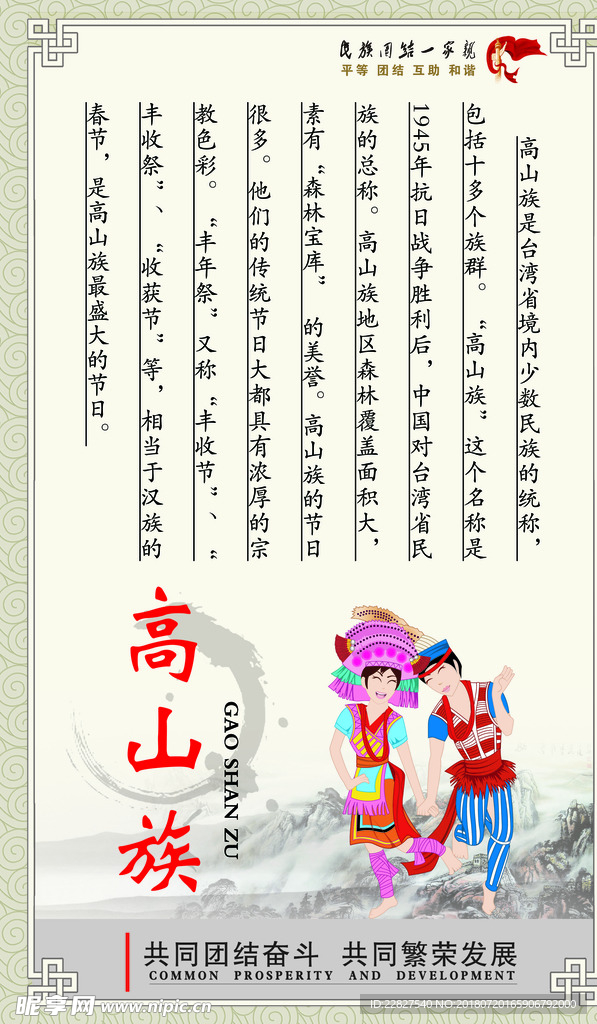 民族团结一家亲
平等 团结 互助 和谐
高山族是台湾省境内少数民族的统称，
包括十多个族群。“高山族”这个名称是
1945年抗日战争胜利后，中国对台湾省民
族的总称。高山族地区森林覆盖面积大，
素有“森林宝库” 的美誉。高山族的节日
很多。他们的传统节日大都具有浓厚的宗
教色彩。“丰年祭”又称“丰收节”、“
丰收祭”、“收获节”等，相当于汉族的
春节，是高山族最盛大的节日。
高山族
GAO SHAN ZU
共同团结奋斗 共同繁荣发展
COMMON PROSPERITY AND DEVELOPMENT
昵享网 www.nipic.cn
ID:22827540 NO:20180720165906792000